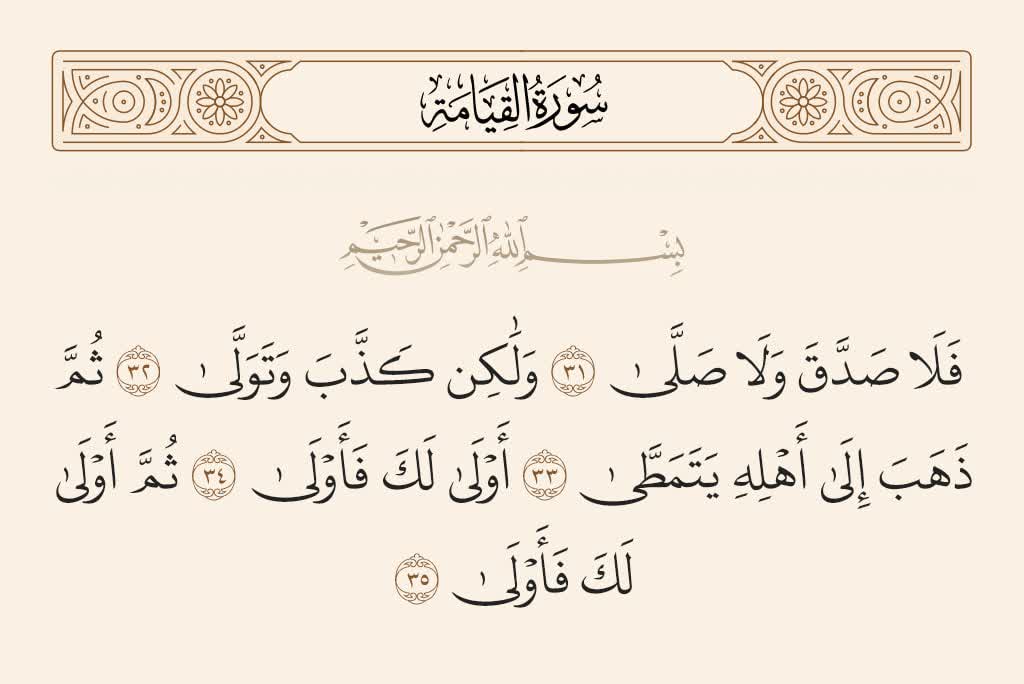 سُورَةُ الْقِيَامَةِ
بِسْمِ ٱللَّهِ ٱلرَّحْمَٰنِ ٱلرَّحِيمِ
فَلَا صَدَّقَ وَلَا صَلَّىٰ ٣١ وَلَٰكِن كَذَّبَ وَتَوَلَّىٰ ٣٢ ثُمَّ
ذَهَبَ إِلَىٰ أَهْلِهِ يَتَمَطَّىٰ ٣٣ أَوْلَىٰ لَكَ فَأَوْلَىٰ ٣٤ ثُمَّ أَوْلَىٰ
لَكَ فَأَوْلَىٰ ٣٥